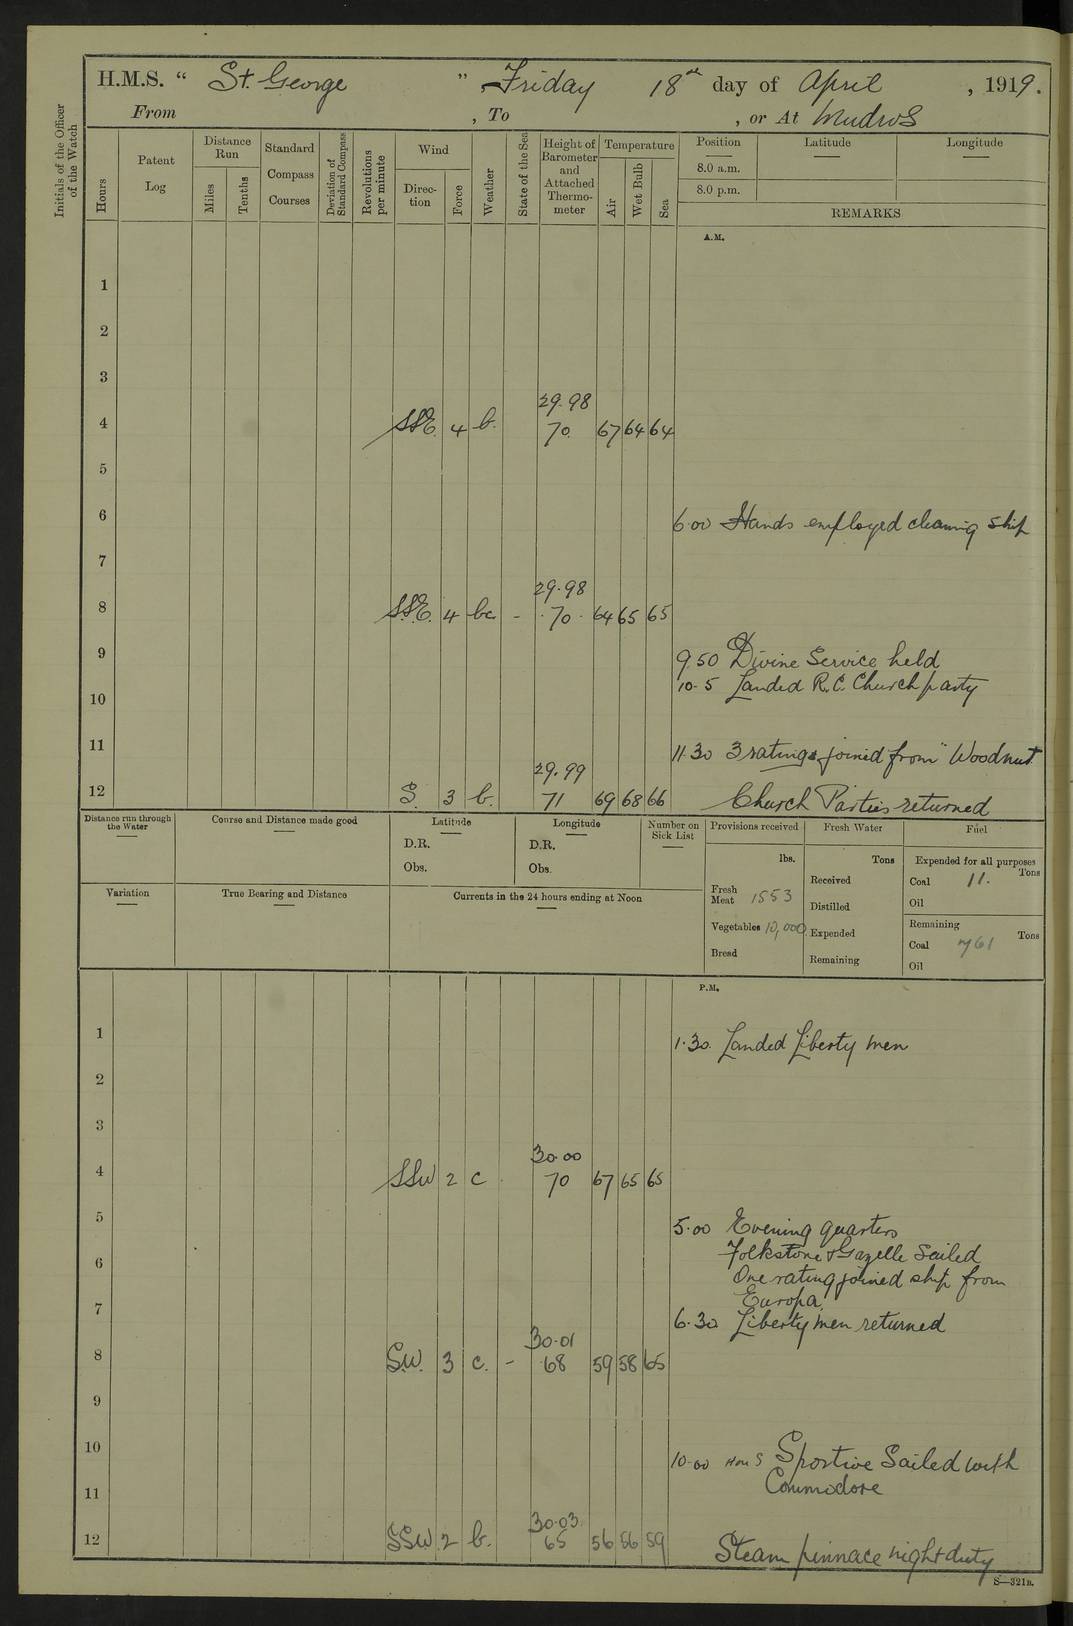 H.M.S. “ St. George ” , Friday 18th day of April , 1919.
From , To , or At Mudros
Initials of the Officer of the Watch
Hours
Patent Log
Distance Run
Miles
Tenths
Standard Compass Courses
Deviation of Standard Compass
Revolutions per minute
Wind
Direction
Force
Weather
State of the Sea
Height of Barometer and Attached Thermometer
Temperature
Air
Wet Bulb
Sea
Position
Latitude
Longitude
8.0 a.m.
8.0 p.m.
REMARKS
A.M.
1
2
3
29.98
4 SSE. 4 b. 70. 67 64 64
5
6 6.00 Hands employed cleaning ship
7
29.98
8 SSE. 4 bc - 70. 64 65 65
9 9.50 Divine Service held
10.5 Landed R.C. Church party
10
11 11.30 3 ratings joined from "Woodnut
29.99
12 S. 3 b. 71 69 68 66 Church Parties returned
Distance run through the Water
Course and Distance made good
Latitude
D.R.
Obs.
Longitude
D.R.
Obs.
Number on Sick List
Provisions received
lbs.
Fresh Meat 1553
Vegetables 10,000
Bread
Fresh Water
Tons
Received
Distilled
Expended
Remaining
Fuel
Expended for all purposes
Tons
Coal 11.
Oil
Remaining
Tons
Coal 761
Oil
Variation
True Bearing and Distance
Currents in the 24 hours ending at Noon
P.M.
1 1.30. Landed Liberty men
2
3
30.00
4 SSW 2 c 70 67 65 65
5 5.00 Evening quarters
Folkstone & Gazelle Sailed
6 One rating joined ship from
Europa.
7 6.30 Liberty men returned
30.01
8 S.W. 3 c. - 68 59 58 65
9
10 10.00 HMS Sportive Sailed with
Commodore
11
30.03
12 SSW 2 b. 65 56 56 59 Steam pinnace night duty
S—321B.